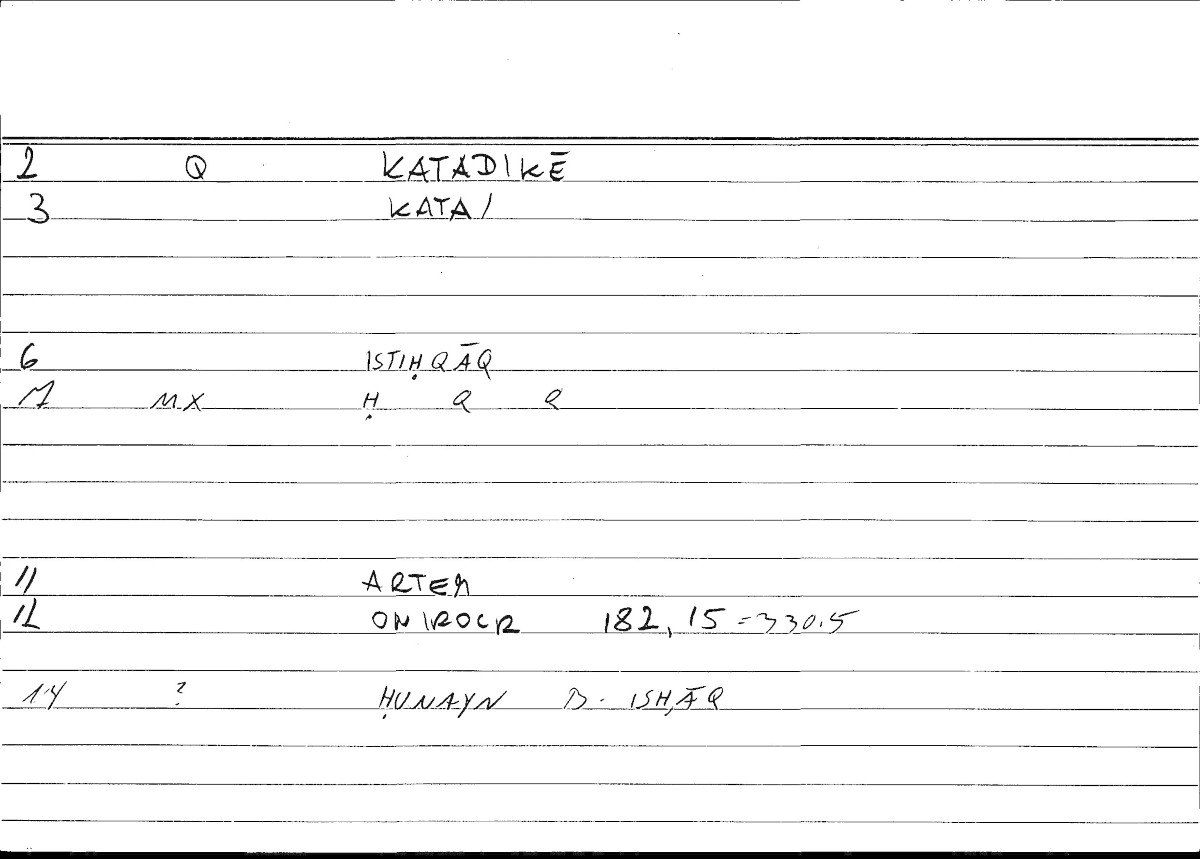 2 Q KATADIKĒ
3 KATA/
6 ISTIḤQĀQ
7 MX Ḥ Q Q
11 ARTEM
12 ONIROCR 182, 15 = 330.5
14 ? ḤUNAYN B. ISḤĀQ